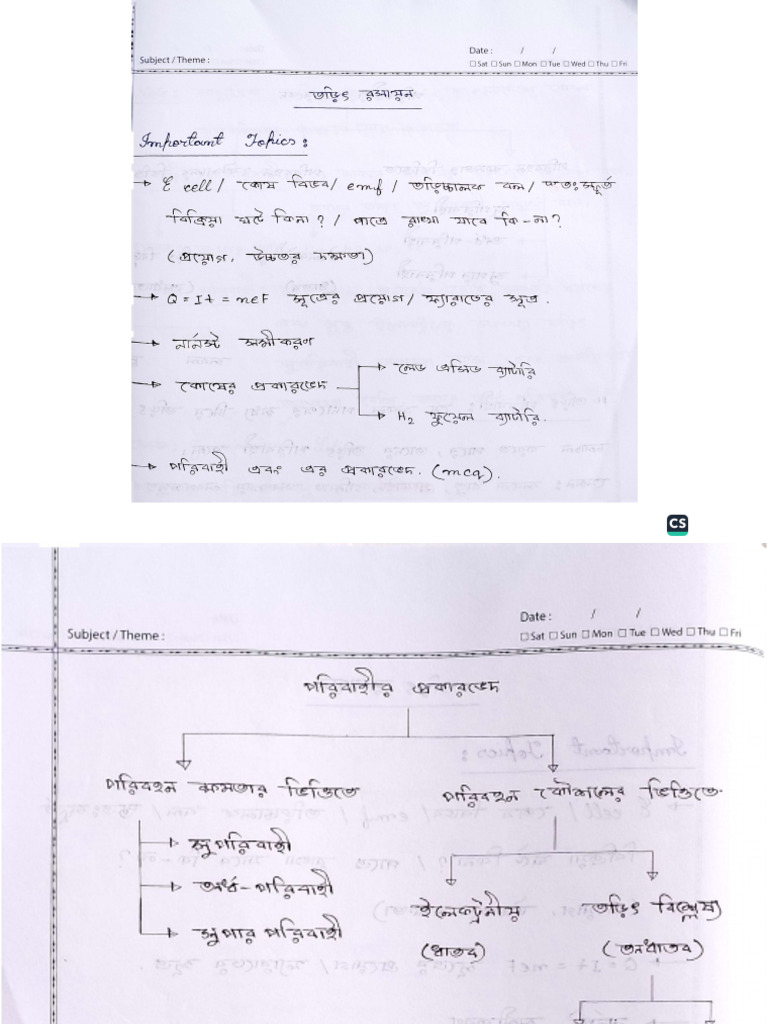 Subject / Theme :
Date : / /
Sat Sun Mon Tue Wed Thu Fri
তড়িৎ রসায়ন
Important Topics :
→ E cell / কোষ বিভব / emf / তড়িচ্চালক বল / স্বতঃস্ফূর্ত
বিক্রিয়া ঘটে কিনা ? / পাত্রে রাখা যাবে কি-না ?
(প্রয়োগ, উচ্চতর দক্ষতা)
→ Q = It = neF সূত্রের প্রয়োগ / ফ্যারাডের সূত্র .
→ নার্নস্ট সমীকরণ
→ কোষের প্রকারভেদ → লেড এসিড ব্যাটারি
→ H2 ফুয়েল ব্যাটারি.
→ পরিবাহী এবং এর প্রকারভেদ. (mcq).
CS
Date : / /
Subject / Theme :
Sat Sun Mon Tue Wed Thu Fri
পরিবাহীর প্রকারভেদ
পরিবহন ক্ষমতার ভিত্তিতে
পরিবহন কৌশলের ভিত্তিতে.
→ সুপরিবাহী
→ অর্ধ-পরিবাহী
→ সুপার পরিবাহী
ইলেকট্রনীয় তড়িৎ বিশ্লেষ্য
(ধাতব) (অধাতব)